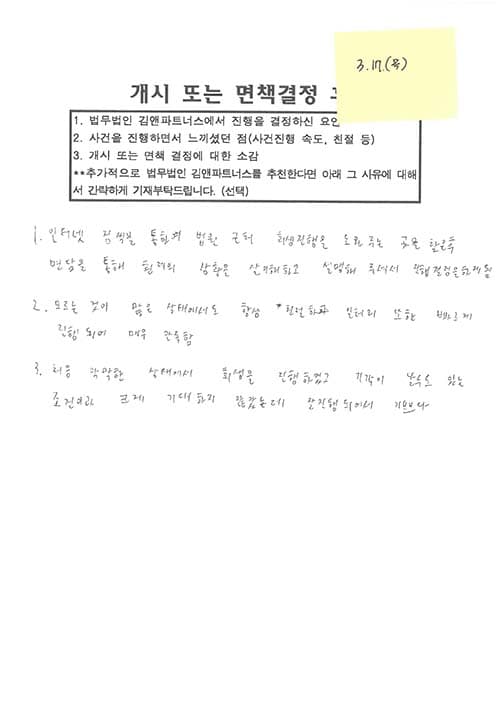 3.17.(목)
개시 또는 면책결정
1. 법무법인 김앤파트너스에서 진행을 결정하신 요인
2. 사건을 진행하면서 느끼셨던 점(사건진행 속도, 친절 등)
3. 개시 또는 면책 결정에 대한 소감
**추가적으로 법무법인 김앤파트너스를 추천한다면 아래 그 사유에 대해
서 간략하게 기재부탁드립니다. (선택)
1. 인터넷 검색을 통하여 법원 근처 회생진행을 도와주는 곳을
면담을 통해 현재의 상황을 잘 이해하고 설명해 주셔서 진행결정을하게됨
2. 모르는 것이 많은 상태에서도 항상 친절하고 일처리 또한 빠르게
진행 되어 매우 만족함
3. 처음 막막한 상태에서 회생을 진행하였고 기각이 날수도 있는
조건이라 크게 기대하지 않았는데 잘진행되어서 기쁘다